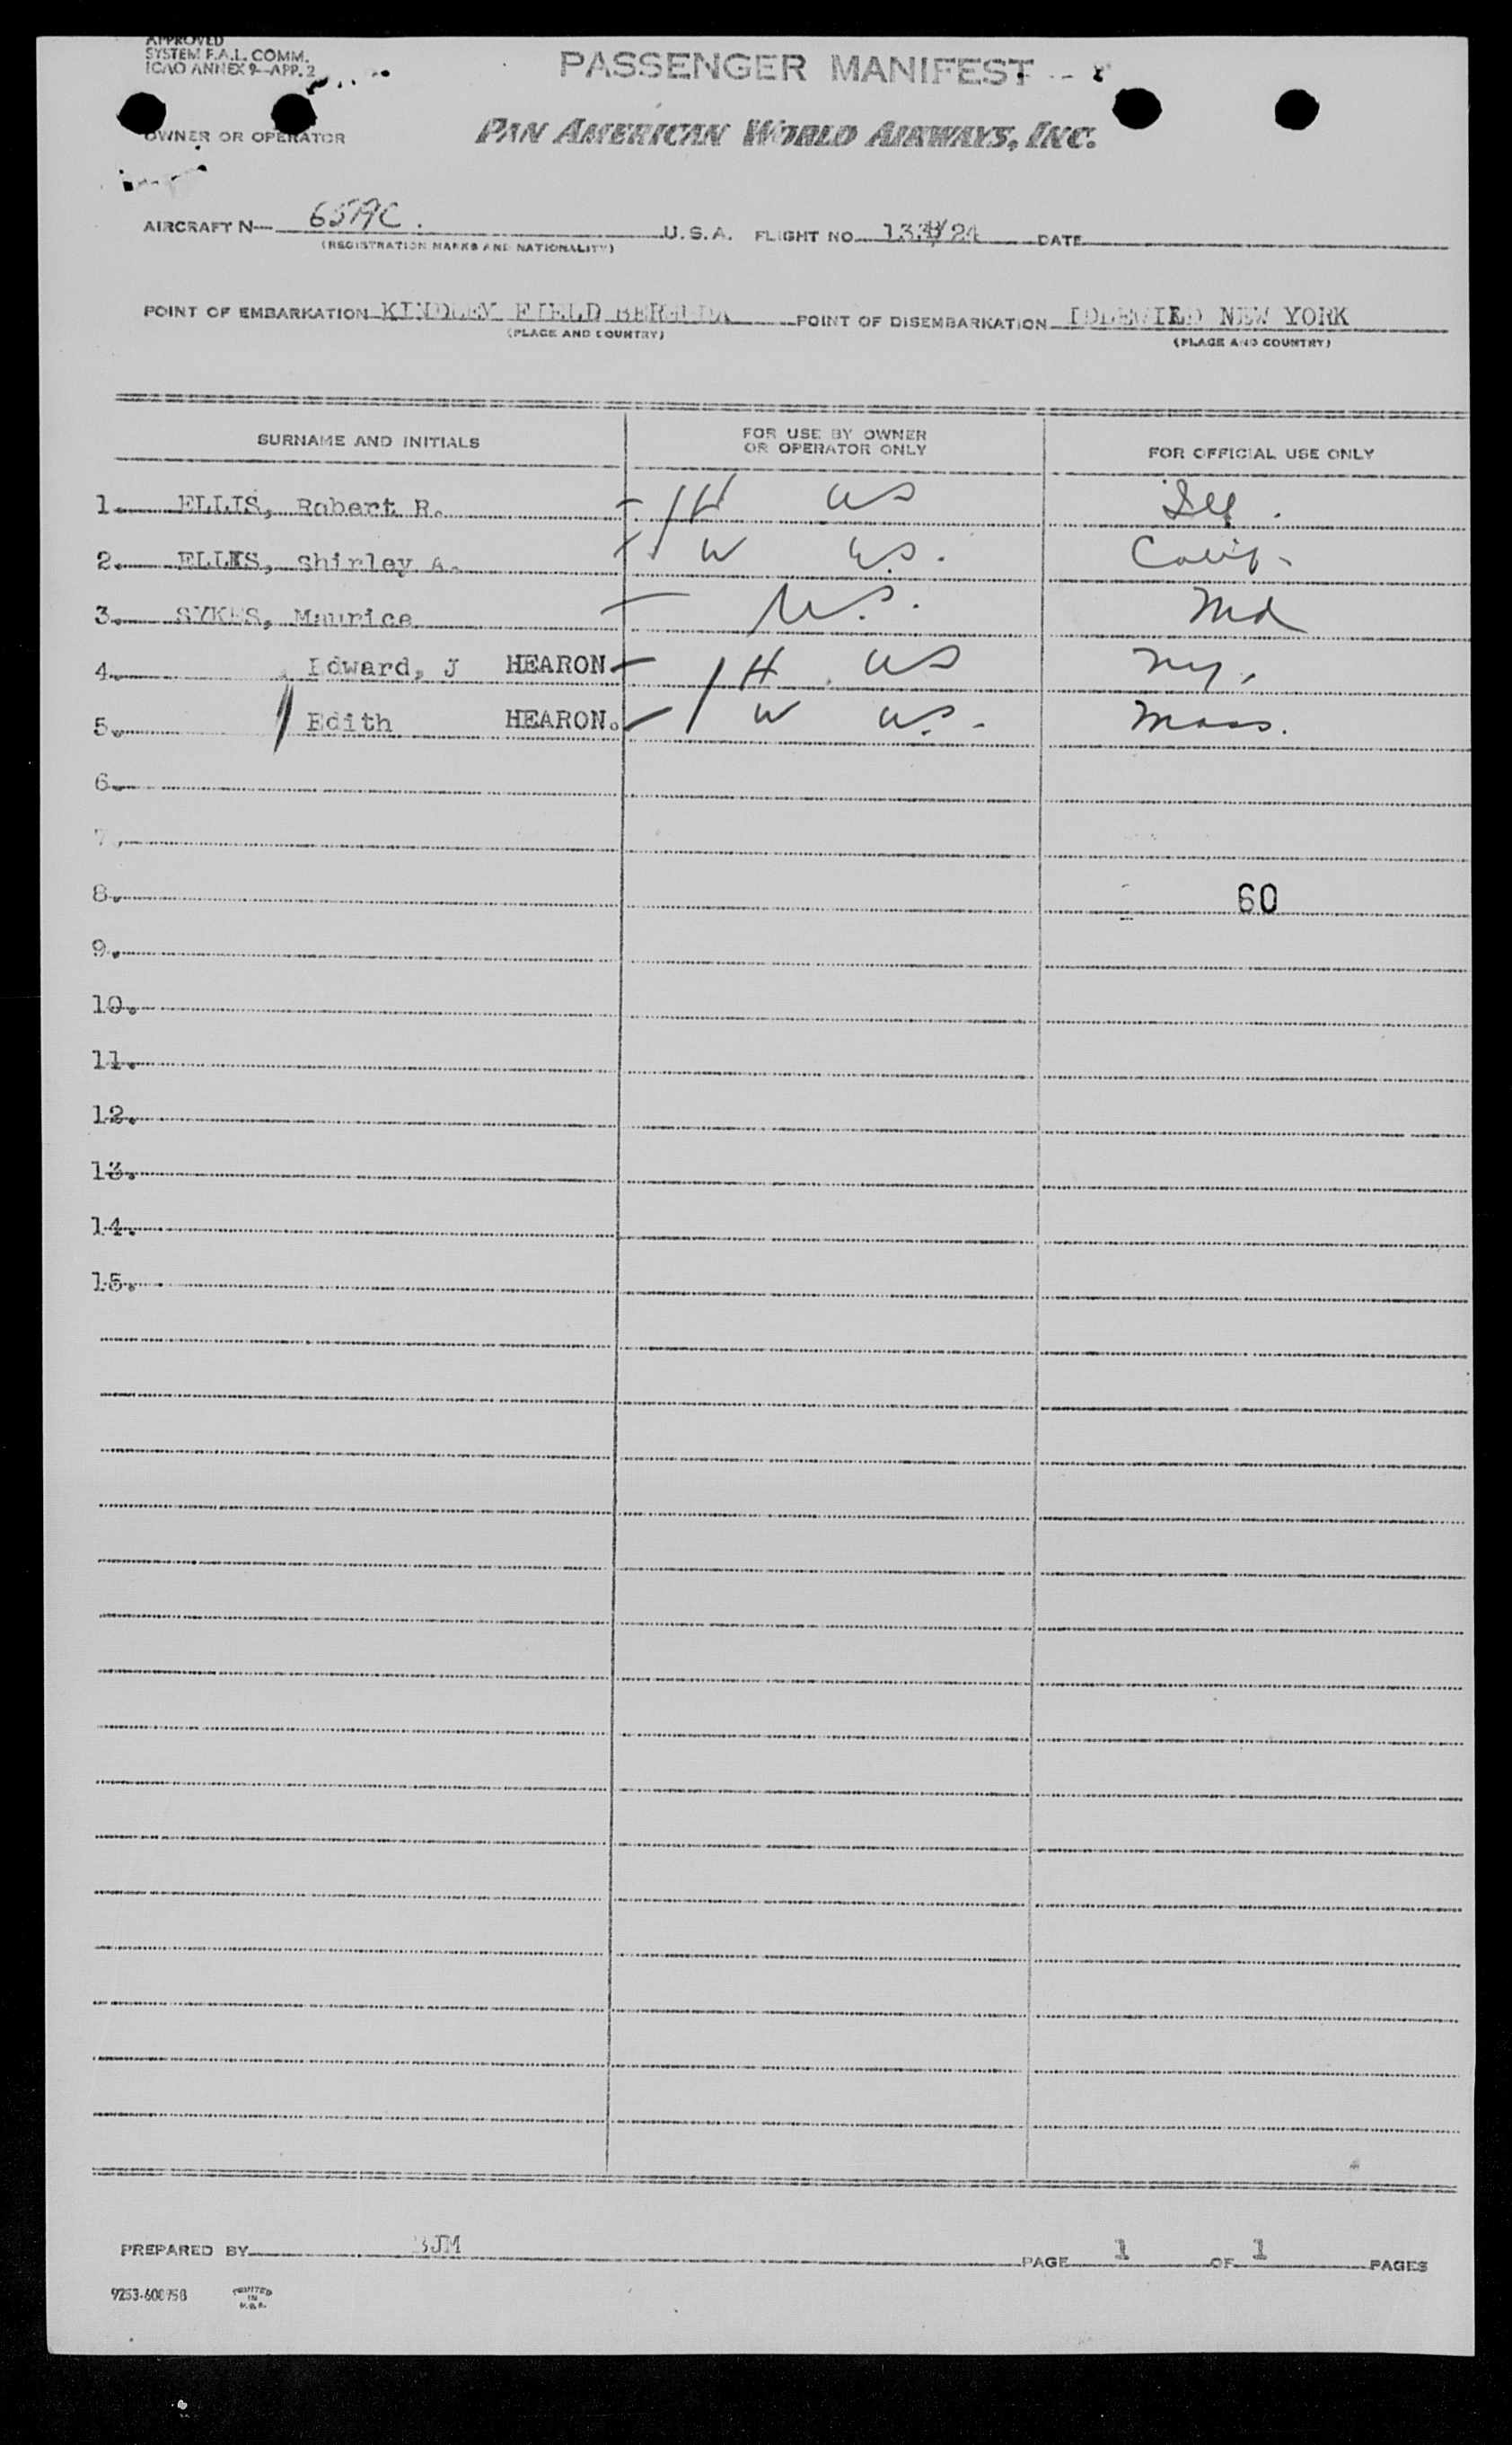 APPROVED
SYSTEM F.A.L. COMM.
ICAO ANNEX 9—APP. 2
PASSENGER MANIFEST
OWNER OR OPERATOR
PAN AMERICAN WORLD AIRWAYS, INC.
AIRCRAFT N— U.S.A. FLIGHT NO. DATE
(REGISTRATION MARKS AND NATIONALITY)
POINT OF EMBARKATION KINDLEY FIELD BERMUDA POINT OF DISEMBARKATION IDLEWILD NEW YORK
(PLACE AND COUNTRY) (PLACE AND COUNTRY)
SURNAME AND INITIALS FOR USE BY OWNER OR OPERATOR ONLY FOR OFFICIAL USE ONLY
1. ELLIS, Robert R. H US Ill.
2. ELLIS, Shirley A. W U.S. Calif.
3. SYKES, Maurice U.S. Md
4. Edward, J HEARON H US NY.
5. Edith HEARON. W U.S. Mass.
6.
7.
8. 60
9.
10.
11.
12.
13.
14.
15.
PREPARED BY BJM PAGE 1 OF 1 PAGES
PRINTED
IN
U.S.A.